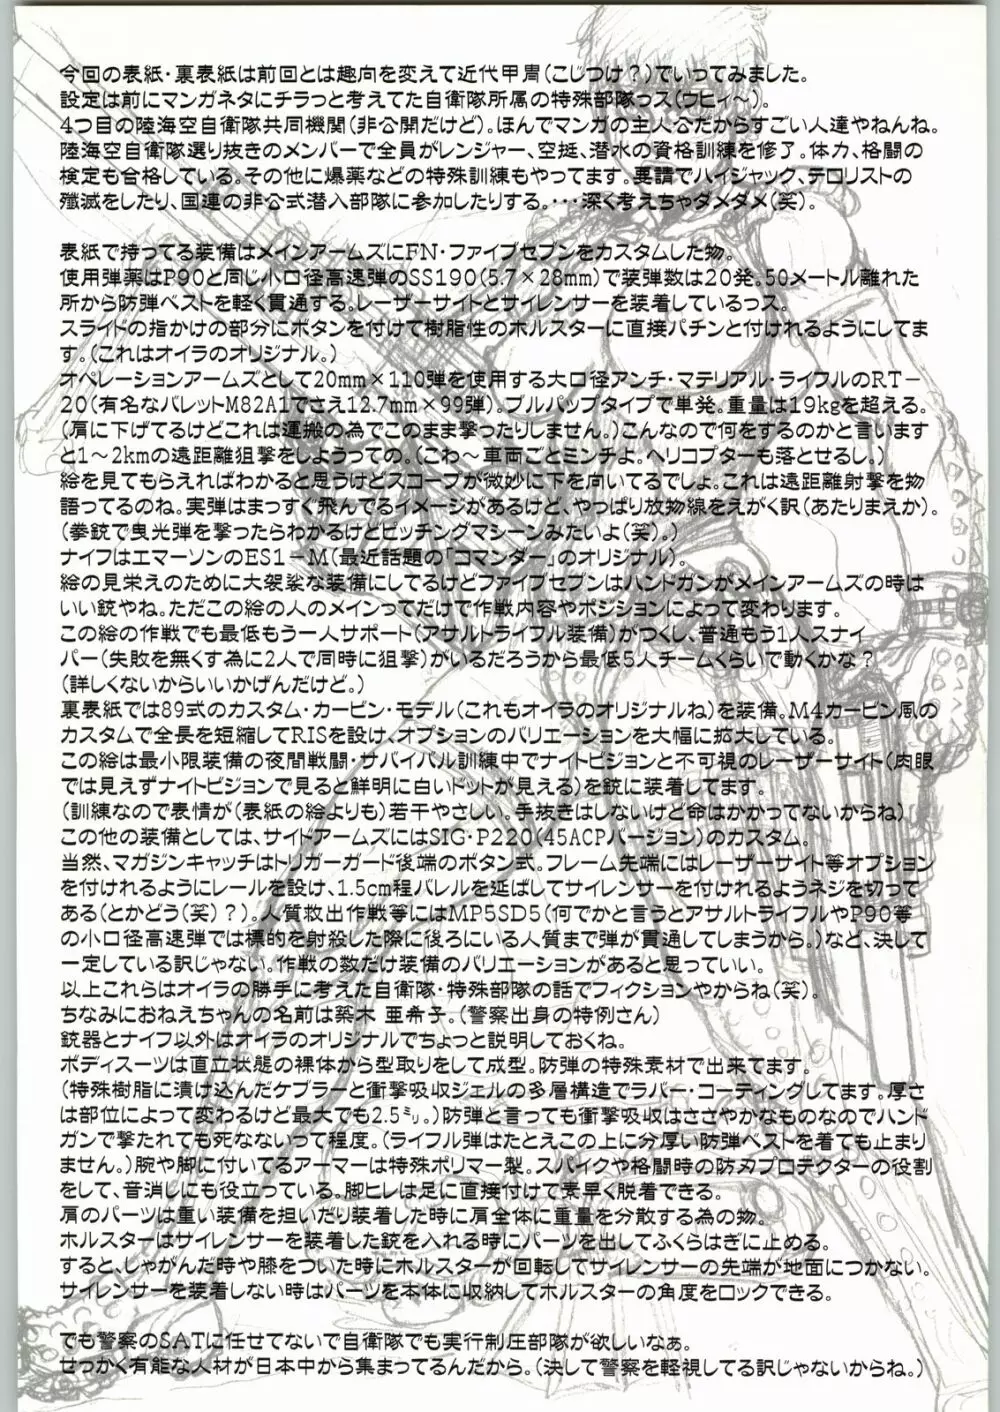 今回の表紙・裏表紙は前回とは趣向を変えて近代甲冑(こじつけ?)でいってみました。
設定は前にマンガネタにチラっと考えてた自衛隊所属の特殊部隊っス(ウヒィ〜)。
4つ目の陸海空自衛隊共同機関(非公開だけど)。ほんでマンガの主人公だからすごい人達やねんね。
陸海空自衛隊選り抜きのメンバーで全員がレンジャー、空挺、潜水の資格訓練を修了。体力、格闘の
検定も合格している。その他に爆薬などの特殊訓練もやってます。要請でハイジャック、テロリストの
殲滅をしたり、国連の非公式潜入部隊に参加したりする。・・・深く考えちゃダメダメ(笑)。

表紙で持ってる装備はメインアームズにFN・ファイブセブンをカスタムした物。
使用弾薬はP90と同じ小口径高速弾のSS190(5.7×28mm)で装弾数は20発。50メートル離れた
所から防弾ベストを軽く貫通する。レーザーサイトとサイレンサーを装着しているっス。
スライドの指かけの部分にボタンを付けて樹脂性のホルスターに直接パチンと付けれるようにしてま
す。(これはオイラのオリジナル。)
オペレーションアームズとして20mm×110弾を使用する大口径アンチ・マテリアル・ライフルのRT−
20(有名なバレットM82A1でさえ12.7mm×99弾)。ブルパップタイプで単発。重量は19kgを超える。
(肩に下げてるけどこれは運搬の為でこのまま撃ったりしません。)こんなので何をするのかと言います
と1〜2kmの遠距離狙撃をしようっての。(こわ〜車両ごとミンチよ。ヘリコプターも落とせるし。)
絵を見てもらえればわかると思うけどスコープが微妙に下を向いてるでしょ。これは遠距離射撃を物
語ってるのね。実弾はまっすぐ飛んでるイメージがあるけど、やっぱり放物線をえがく訳(あたりまえか)。
(拳銃で曳光弾を撃ったらわかるけどピッチングマシーンみたいよ(笑)。)
ナイフはエマーソンのES1−M(最近話題の「コマンダー」のオリジナル)
絵の見栄えのために大袈裟な装備にしてるけどファイブセブンはハンドガンがメインアームズの時は
いい銃やね。ただこの絵の人のメインってだけで作戦内容やポジションによって変わります。
この絵の作戦でも最低もう一人サポート(アサルトライフル装備)がつくし、普通もう1人スナイ
パー(失敗を無くす為に2人で同時に狙撃)がいるだろうから最低5人チームくらいで動くかな?
(詳しくないからいいかげんだけど。)
裏表紙では89式のカスタム・カービン・モデル(これもオイラのオリジナルね)を装備。M4カービン風の
カスタムで全長を短縮してRISを設け、オプションのバリエーションを大幅に拡大している。
この絵は最小限装備の夜間戦闘・サバイバル訓練中でナイトビジョンと不可視のレーザーサイト(肉眼
では見えずナイトビジョンで見ると鮮明に白いドットが見える)を銃に装着してます。
(訓練なので表情が(表紙の絵よりも)若干やさしい。手抜きはしないけど命はかかってないからね)
この他の装備としては、サイドアームズにはSIG・P220(45ACPバージョン)のカスタム。
当然、マガジンキャッチはトリガーガード後端のボタン式。フレーム先端にはレーザーサイト等オプション
を付けれるようにレールを設け、1.5cm程バレルを延ばしてサイレンサーを付けれるようネジを切って
ある(とかどう(笑)?)。人質救出作戦等にはMP5SD5(何でかと言うとアサルトライフルやP90等
の小口径高速弾では標的を射殺した際に後ろにいる人質まで弾が貫通してしまうから。)など、決して
一定している訳じゃない。作戦の数だけ装備のバリエーションがあると思っていい。
以上これらはオイラの勝手に考えた自衛隊・特殊部隊の話でフィクションやからね(笑)。
ちなみにおねえちゃんの名前は築木 亜希子。(警察出身の特例さん)
銃器とナイフ以外はオイラのオリジナルでちょっと説明しておくね。
ボディスーツは直立状態の裸体から型取りをして成型。防弾の特殊素材で出来てます。
(特殊樹脂に漬け込んだケブラーと衝撃吸収ジェルの多層構造でラバー・コーティングしてます。厚さ
は部位によって変わるけど最大でも2.5㍉。)防弾と言っても衝撃吸収はささやかなものなのでハンド
ガンで撃たれても死なないって程度。(ライフル弾はたとえこの上に分厚い防弾ベストを着ても止まり
ません。)腕や脚に付いてるアーマーは特殊ポリマー製。スパイクや格闘時の防刃プロテクターの役割
をして、音消しにも役立っている。脚ヒレは足に直接付けて素早く脱着できる。
肩のパーツは重い装備を担いだり装着した時に肩全体に重量を分散する為の物。
ホルスターはサイレンサーを装着した銃を入れる時にパーツを出してふくらはぎに止める。
すると、しゃがんだ時や膝をついた時にホルスターが回転してサイレンサーの先端が地面につかない。
サイレンサーを装着しない時はパーツを本体に収納してホルスターの角度をロックできる。

でも警察のSATに任せてないで自衛隊でも実行制圧部隊が欲しいなぁ。
せっかく有能な人材が日本中から集まってるんだから。(決して警察を軽視してる訳じゃないからね。)